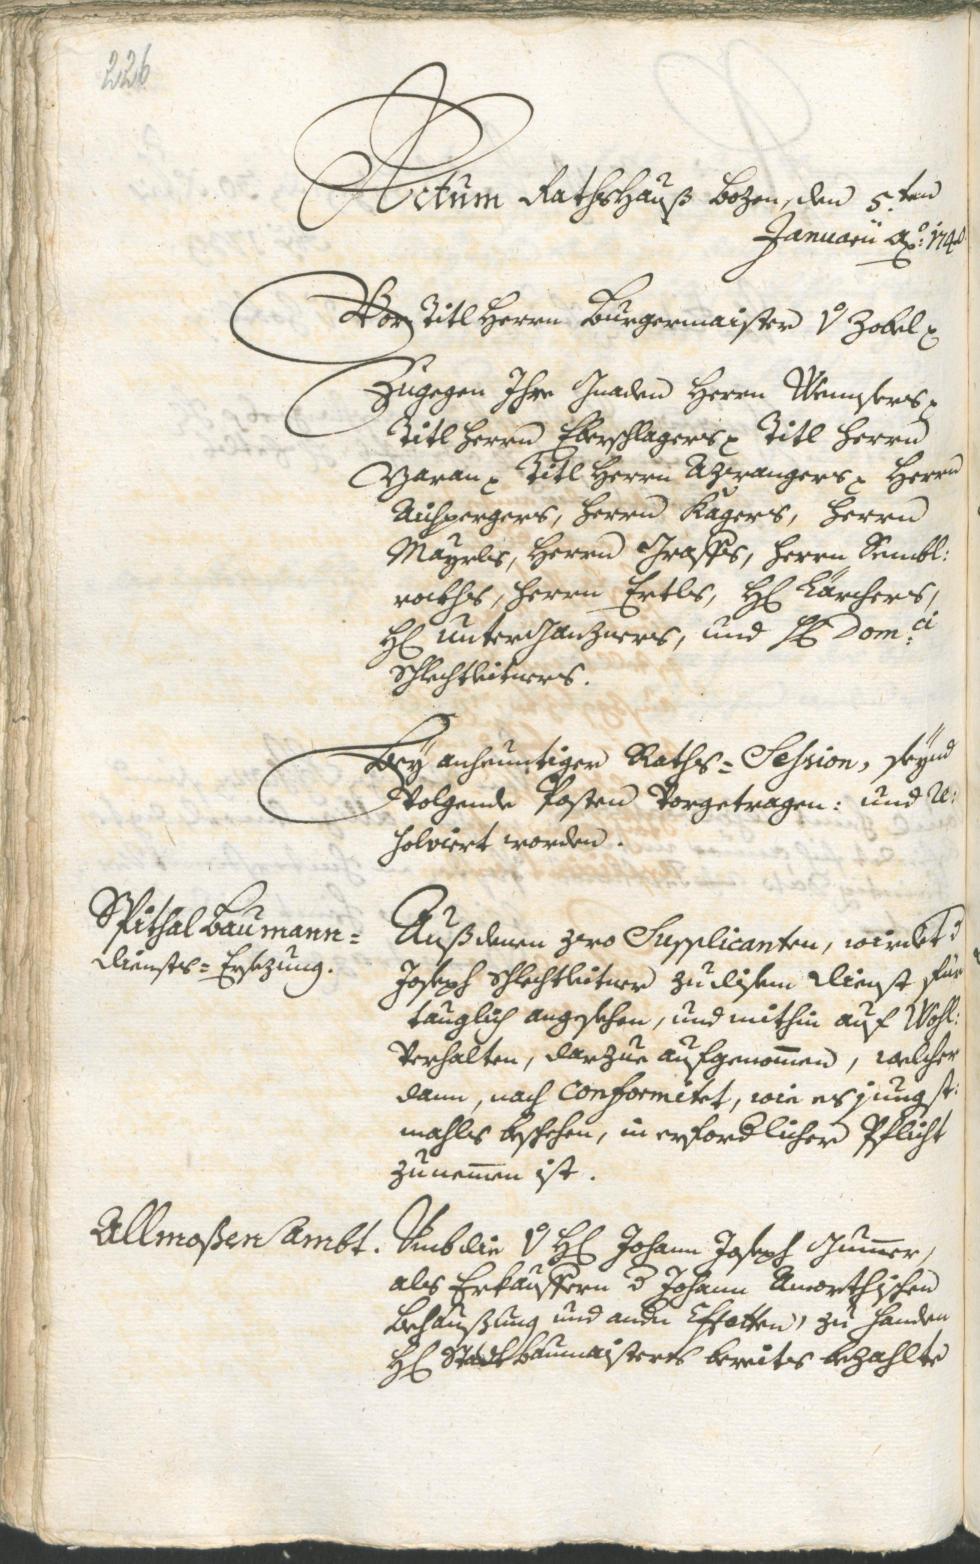 226
Actum Rathshauß Bozen, den 5.ten
Januarii Ao: 174
Vor Titl Herrn Burgermaister v Zobel
Zugegen Ihro Gnaden Herrn Wenzers
Titl Herrn Eberschlagers Titl Herrn
Titl Herrn Azwangers Herrn
Aichpergers, Herrn Kagers, Herrn
Mayrls, Herrn Grasses, Herrn Sembl:
rockhs, Herrn Ertls, H: Kärchers,
H: Untergänzners, und H: Dom:ci
Schlechtleitners.
Bey anheuntiger Raths-Session, seynd
Volgende Posten Vorgetragen: und Re:
solviert worden.
Spithal Baumann-
diensts-Ersezung.
Auß denen zwo Supplicanten, wirdet d
Joseph Schlechtleitner zu disem Dienst für
tauglich angesehen, und mithin auf Wohl:
Verhalten, darzue aufgenommen, welcher
dann, nach Conformitet, wie es jungst:
mahls beschehen, in erfordlicher Pflicht
zunemmen ist.
Allmoßen Ambt.
Umb die v H: Johann Joseph Gummer,
als Erkauffern d Johann Amorthischen
Behaußung und andn Effecten, zu handen
H: Stattbaumaisters bereits bezahlte